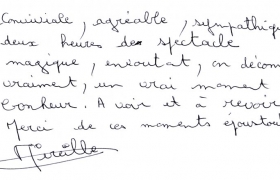 Conviviale, agréable, sympathique
deux heures de spectacle
magique, envoutant, on décom
vraiment, un vrai moment
bonheur. A voir et à revoir
Merci de ces moments époustou
Mireille